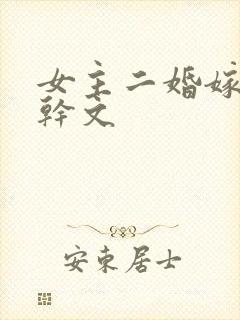 女主二婚嫁
幹文
安東居士